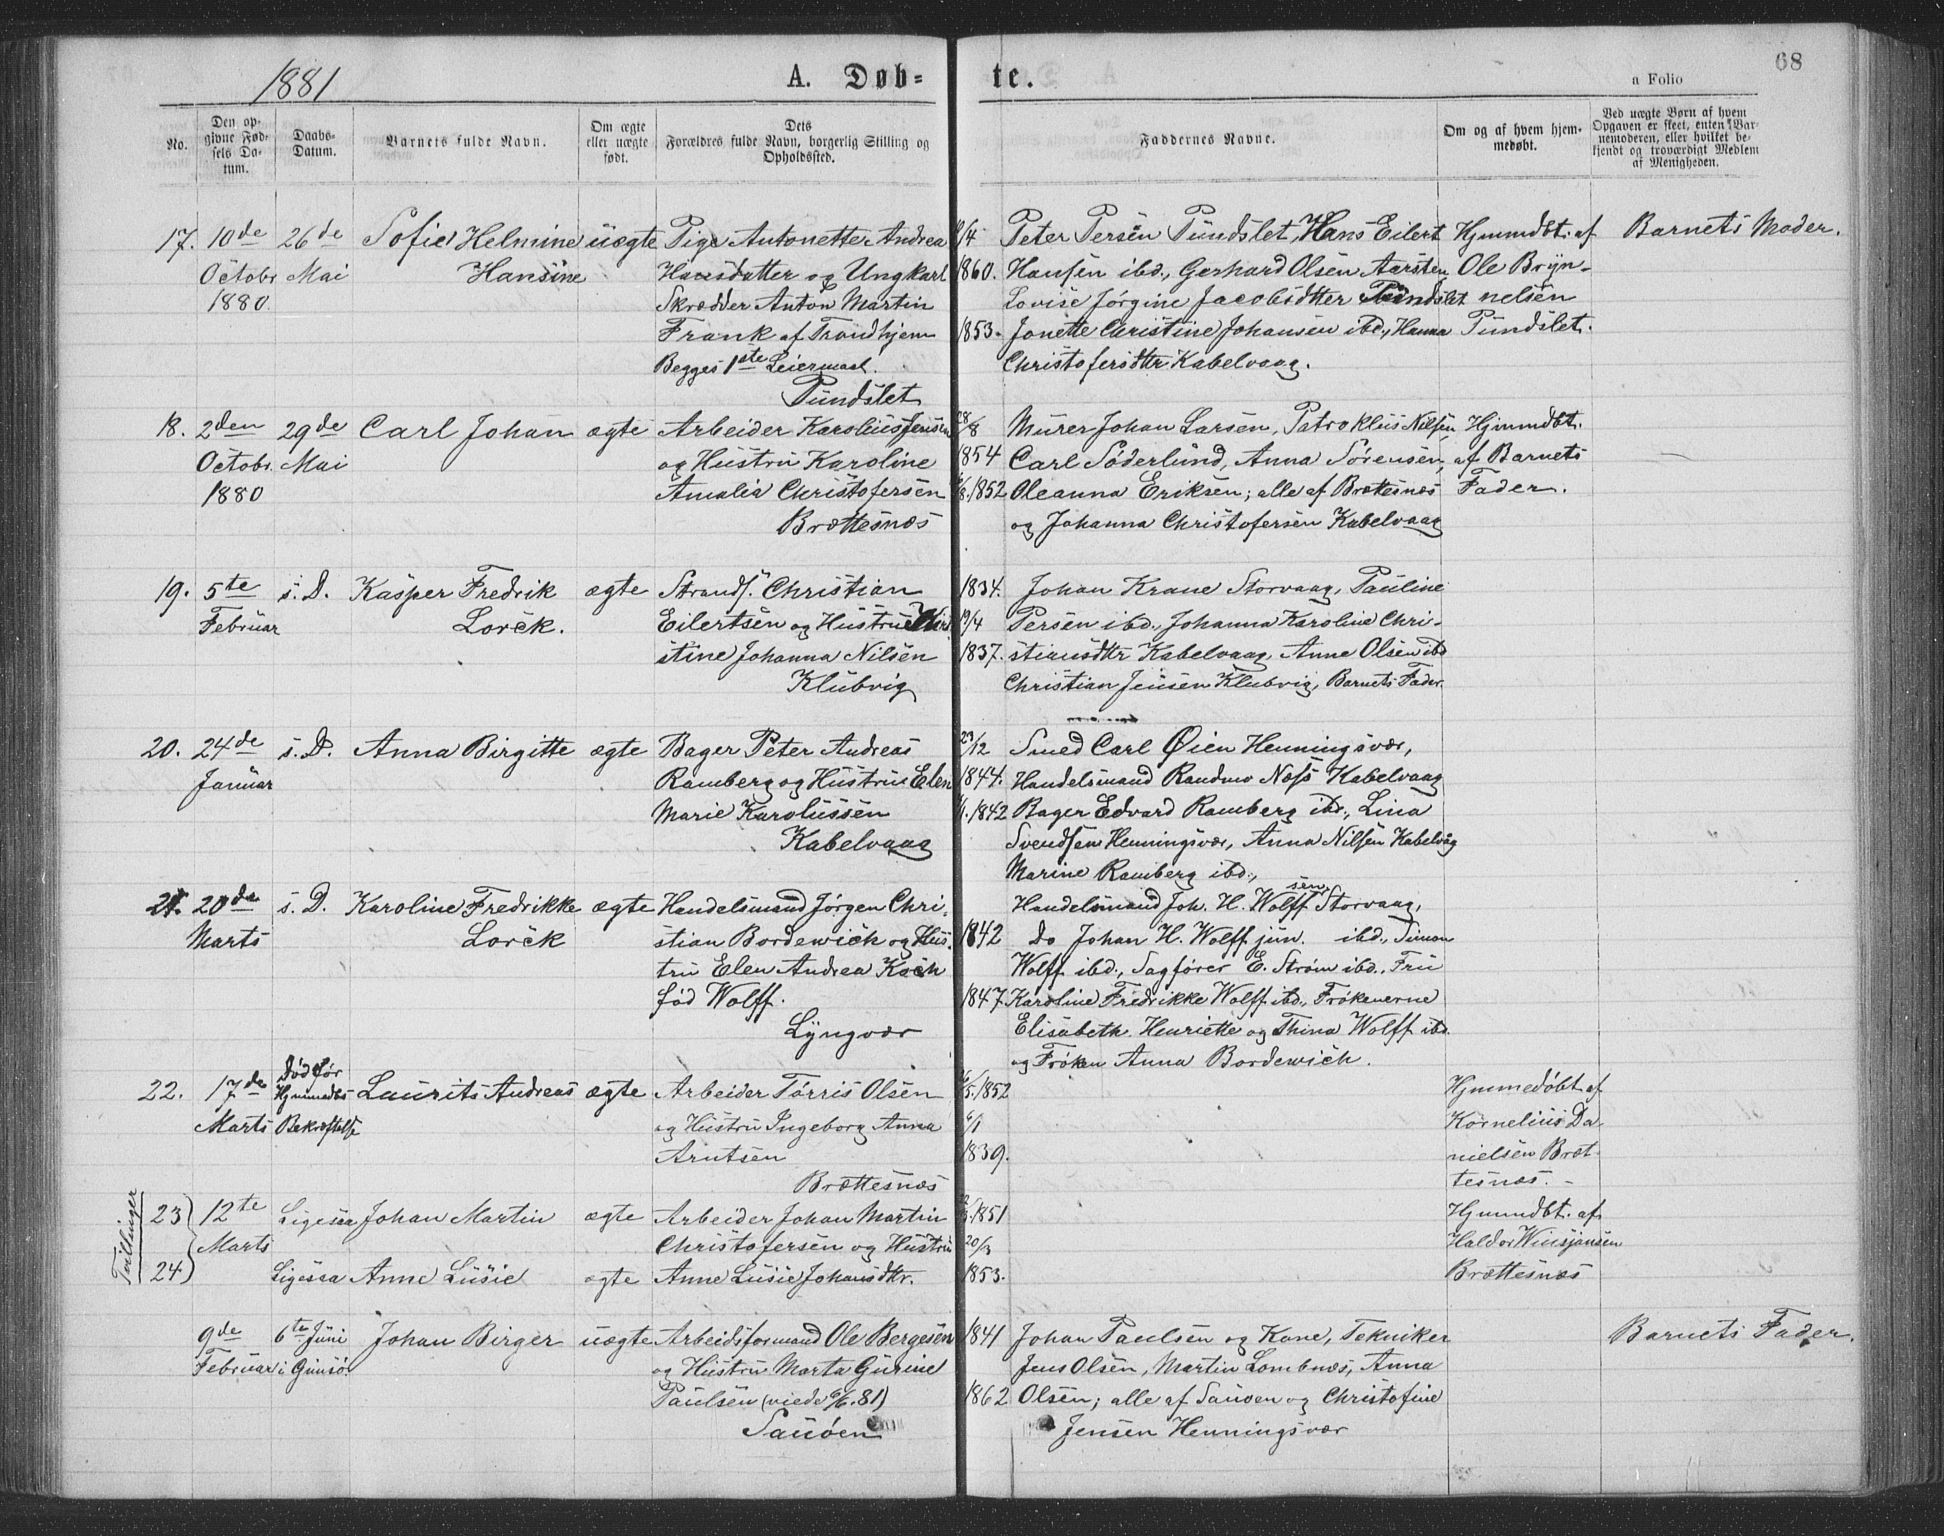 1881
A. Døb-
te.
a Folio
68
No.
Den op-
givne Fød-
sels Da-
tum.
Daabs-
Datum.
Barnets fulde Navn.
Om ægte
eller uægte
født.
Dets
Forældres fulde Navn, borgerlig Stilling og
Opholdssted.
Faddernes Navne.
Om og af hvem hjem-
medøbt.
Ved uægte Børn af hvem
Opgaven er skeet, enten Bar-
nemoderen, eller hvilket be-
kjendt og troværdigt Medlem
af Menigheden.
17. 10de 26de Sofie Helmine uægte Pige Antonette Andrea /4 Peter Persen Pundslet, Hans Eilert Hjmmdbt. af Barnets Moder.
Octobr Mai Hansine Hansdatter og Ungkarl 1860. Hansen ibd., Gerhard Olsen Aarsten, Ole Bryn-
1880. Skrædder Anton Martin Lovise Jørgine Jacobsdtter Pundslet nelsen
Frank af Trondhjem 1853. Jonette Christine Johansen ibd., Hanna Pundslet.
Begges 1ste Leiermaal. Christofersdtr Kabelvaag.
Pundslet
18. 2den 29de Carl Johan ægte Arbeider Karolius Jensen 28/8 Murer Johan Larsen, Patroklus Nilsen, Hjmmdbt.
Octobr. Mai og Hustru Karoline 1854 Carl Søderlund, Anna Sørensen, af Barnets
1880 Amalia Christofersen /8. 1852 Oleanna Eriksen; alle af Brættesnæs Fader.
Brættesnæs og Johanna Christofersen Kabelvaag
19. 5te s. D. Kasper Fredrik ægte Strands. Christian 1834. Johan Krane Storvaag, Pauline
Februar Lorck. Eilertsen og Hustru Kir- 19/4 Persen ibd., Johanna Karoline Chri-
stine Johanna Nilsen 1837. stiansdtr Kabelvaag, Anne Olsen ibd
Klubvig Christian Jensen Klubvig, Barnets Fader.
20. 24de s. D. Anna Birgitte ægte Bager Peter Andreas 23/12 Smed Carl Øien Henningsvær,
Januar Ramberg og Hustru Elen 1844. Handelsmand Randmo Næss Kabelvaag
Marie Karolussen /1. 1842 Bager Edvard Ramberg ibd., Lina
Kabelvaag Svendsen Henningsvær, Anna Nilsen Kabelvåg
Marine Ramberg ibd.,
21. 20de s. D. Karoline Fredrikke ægte Handelsmand Jørgen Chri- Handelsmand Joh. H. Wolff sen. Storvaag,
Marts Lorck stian Bordewick og Hus- 1842 Do Johan H. Wolff jun. ibd., Simon
tru Elen Andrea Koch Wolff ibd., Sagfører E. Strøm ibd., Fru
fød Wolff. 1847 Karoline Fredrikke Wolff ibd., Frøkenerne
Lyngvær Elisabeth. Henriette og Thina Wolff ibd.
og Frøken Anna Bordewich.
22. 17de Død før Laurits Andreas ægte Arbeider Tørris Olsen /5. 1852 Hjmmedøbt af
Marts Hjmmedåbs og Hustru Ingeborg Anna 6/1 Kornelius Da-
Bekræftelse Arntsen 1839. nielsen Bræt-
Brættesnæs tesnæs.
Tvillinger
23 12te Ligesaa Johan Martin ægte Arbeider Johan Martin 1851 Hjmmdbt. af
Marts Christofersen og Hustru 20/3 Haldor
24 Ligesaa Anne Lusie ægte Anne Lusie Johansdtr. 1853. Brættesnæs
9de 6te Juni Johan Birger uægte Arbeidsformand Ole Bergesen 1841 Johan Paulsen og Kone, Tekniker Barnets Fader.
Februar i Gimsø. og Hustru Marta Gurine Jens Olsen, Martin Lombnæs, Anna
Paulsen (viede 6/6. 81) 1862 Olsen; alle af Sauøen og Christofine
Sauøen Jensen Henningsvær